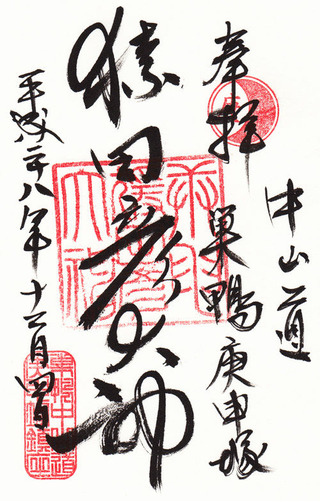 奉拝
中山道
巣鴨庚申塚
猿田彦大神
平成二十八年十二月四日